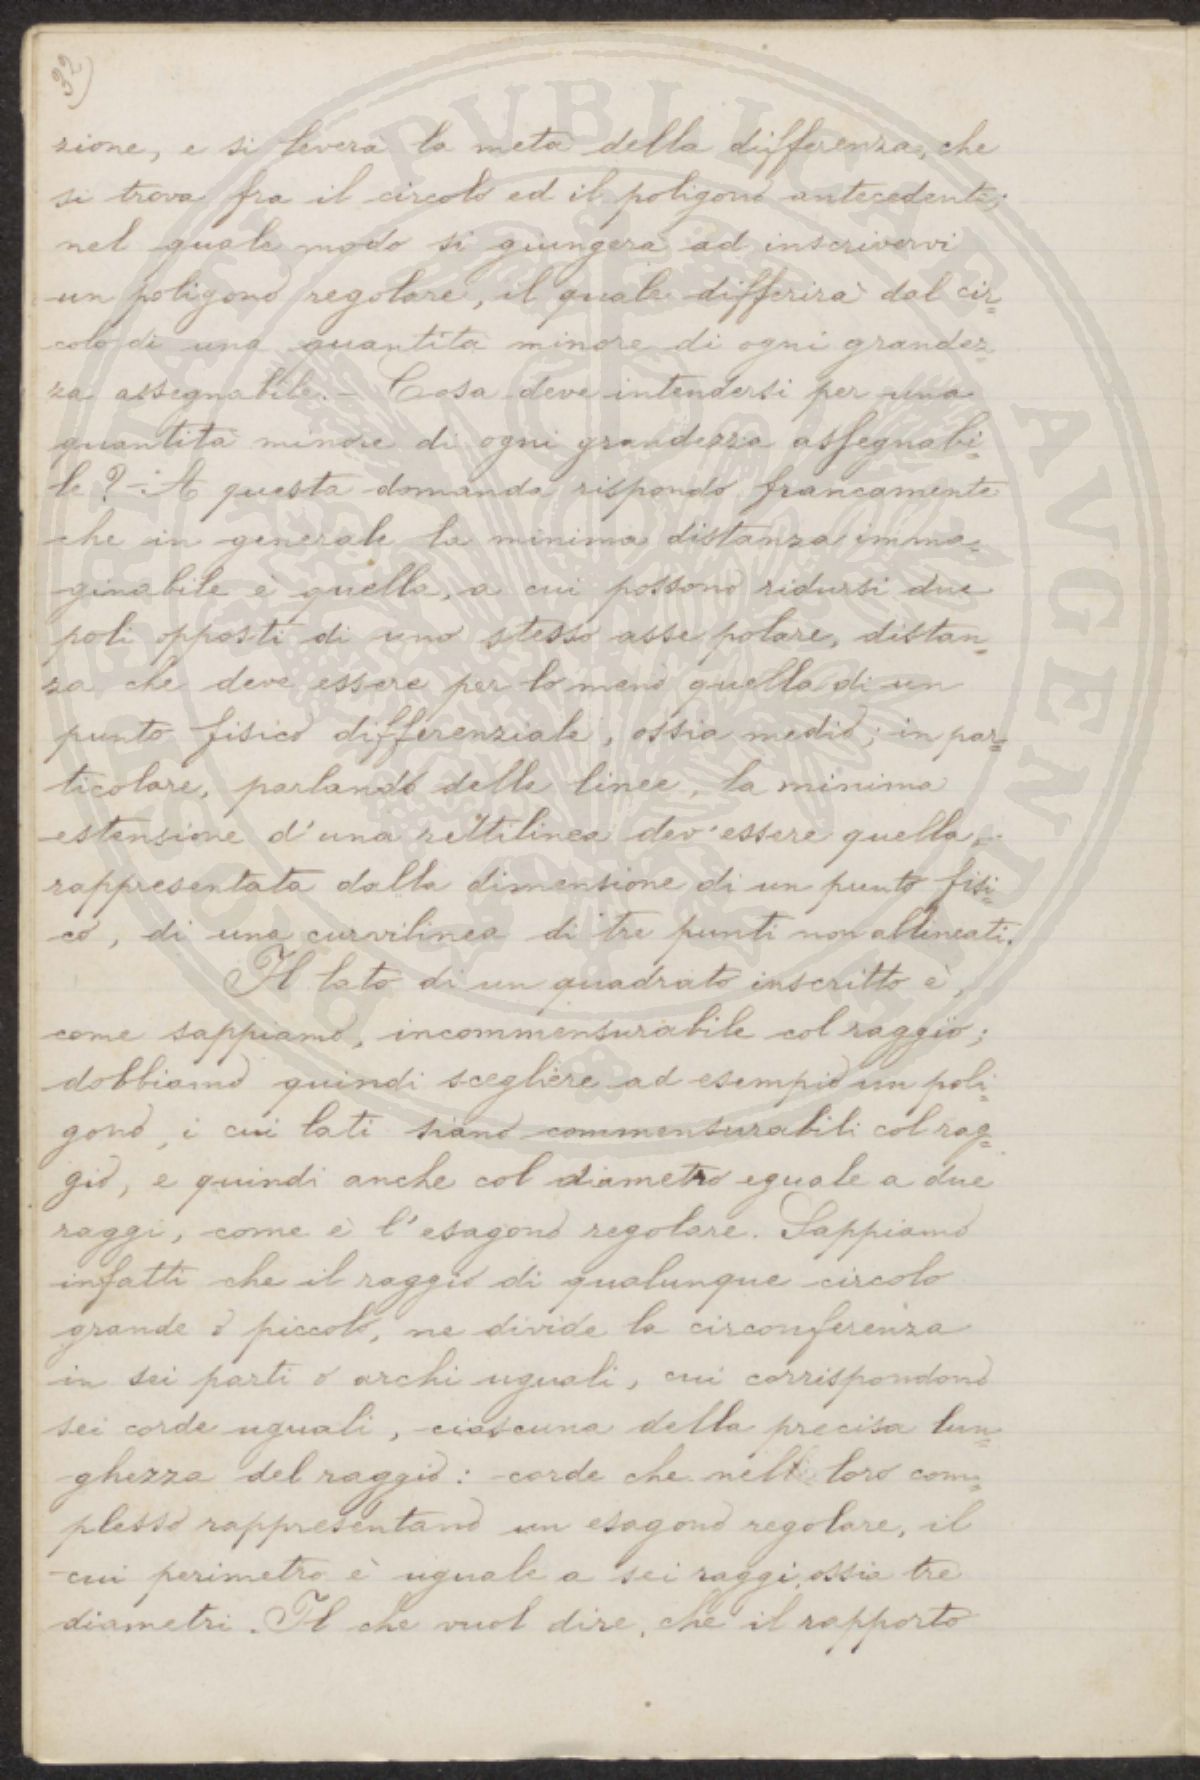 32)
zione, e si leverà la metà della differenza, che
si trova fra il circolo ed il poligono antecedente;
nel quale modo si giungerà ad inscrivervi
un poligono regolare, il quale differirà dal cir=
colo di una quantità minore di ogni grandez=
za assegnabile. – Cosa deve intendersi per una
quantità minore di ogni grandezza assegnabi=
le? – A questa domanda rispondo francamente
che in generale la minima distanza imma=
ginabile è quella, a cui possono ridursi due
poli opposti di uno stesso asse polare, distan=
za che deve essere per lo meno quella di un
punto fisico differenziale, ossia medio; in par=
ticolare, parlando delle linee, la minima
estensione d'una rettilinea dev'essere quella
rappresentata dalla dimensione di un punto fisi=
co, di una curvilinea di tre punti non allineati.
Il lato di un quadrato inscritto è,
come sappiamo, incommensurabile col raggio;
dobbiamo quindi scegliere ad esempio un poli=
gono, i cui lati siano commensurabili col rag=
gio, e quindi anche col diametro eguale a due
raggi, come è l'esagono regolare. Sappiamo
infatti che il raggio di qualunque circolo
grande o piccolo, ne divide la circonferenza
in sei parti o archi uguali, cui corrispondono
sei corde uguali, ciascuna della precisa lun=
ghezza del raggio: corde che nel loro com=
plesso rappresentano un esagono regolare, il
cui perimetro è uguale a sei raggi, ossia tre
diametri. Il che vuol dire, che il rapporto
PUBLICAE AUGENDAE